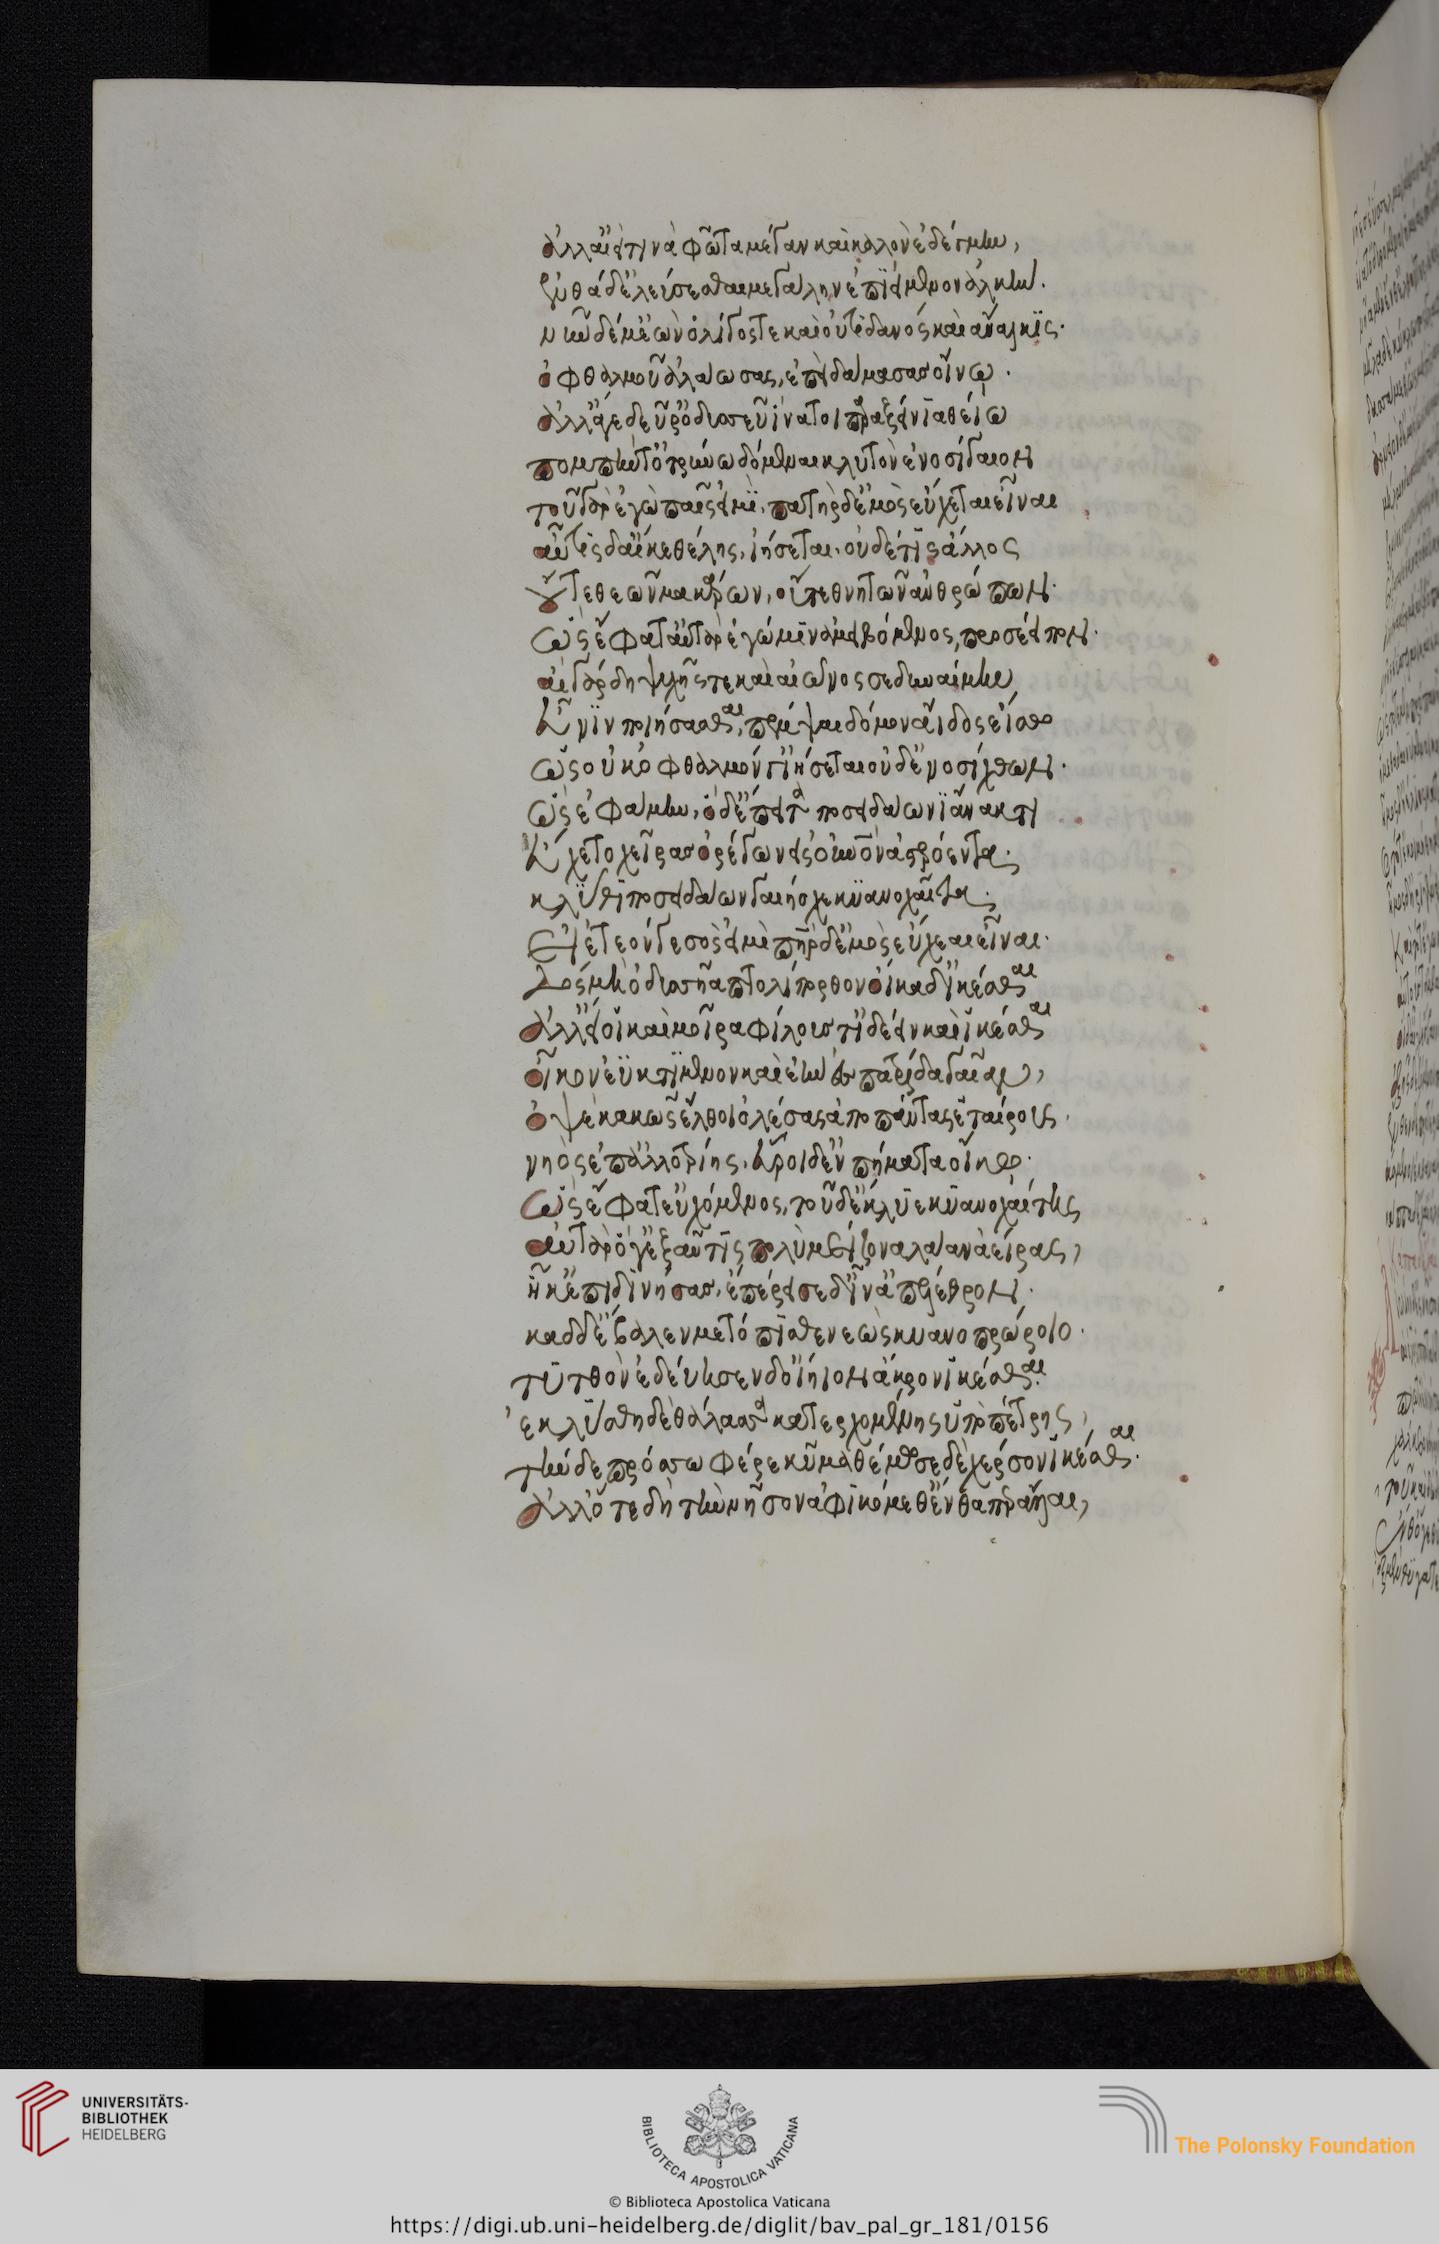 ἀλλαἰεί τινὰ φῶτα μέγαν καὶ καλὸν ἐδέγμην,
ἐνθάδ' ἐλεύσεσθαι μεγάλην ἐπιειμένον ἀλκήν.
νῦν δέ μ' ἐὼν ὀλίγος τε καὶ οὐτιδανὸς καὶ ἄναλκις.
ὀφθαλμοῦ ἀλάωσας, ἐπεὶ δαμάσας οἴνῳ.
ἀλλ' ἄγε δεῦρ' ὀδυσεῦ ἵνα τοι πὰρ ξείνια θείω
πομπήν τ' ὀτρύνω δόμεναι κλυτὸν ἐνοσίγαιον
τοῦ γὰρ ἐγὼ παῖς εἰμὶ. πατὴρ δ' ἐμὸς εὔχεται εἶναι
αὐτὸς δ' αἴ κε θέλης, ἰήσεται. οὐδέ τις ἄλλος
οὔτε θεῶν μακάρων, οὔτε θνητῶν ἀνθρώπων.
ὣς ἔφατ' αὐτὰρ ἐγώ μιν ἀμειβόμενος, προσέειπον.
αἲ γὰρ δὴ ψυχῆς τε καὶ αἰῶνος σε δυναίμην
εὖνιν ποιήσας, πέμψαι δόμον ἄϊδος εἴσω
ὡς οὐκ ὀφθαλμόν γ' ἰήσεται οὐδ' ἐνοσίχθων.
ὣς ἐφάμην, ὁ δ' ἔπειτα ποσειδάωνι ἄνακτι
εὔχετο χεῖρας ὀρέγων εἰς οὐρανὸν ἀστερόεντα.
κλῦθι ποσείδαων γαιήοχε κυανοχαῖτα.
εἰ ἐτεόν γε σὸς εἰμὶ πατὴρ δ' ἐμὸς εὔχεαι εἶναι.
δὸς μὴ ὀδυσῆα πτολίπορθον οἴκαδ' ἱκέσθαι
ἀλλ' εἴ οἱ καὶ μοῖρα φίλους τ' ἰδέειν καὶ ἱκέσθαι
οἶκον ἐϋκτίμενον καὶ ἑὴν ἐς πατρίδα γαῖαν,
ὀψὲ κακῶς ἔλθοι ὀλέσας ἄπο πάντας ἑταίρους.
νηὸς ἐπ' ἀλλοτρίης, εὕροι δ' ἐν πήματα οἴκῳ.
ὣς ἔφατ' εὐχόμενος, τοῦ δ' ἔκλυε κυανοχαίτης
αὐτὰρ ὅγ' ἐξαῦτις πολὺ μείζονα λᾶαν ἀείρας,
ἧκ' ἐπιδινήσας, ἐπέρεισε δ' ἶν' ἀπέλεθρον.
καδδ' ἔβαλεν μετόπισθε νεὼς κυανοπρώροιο.
τυτθὸν ἐδεύησεν δ' οἰήϊον ἄκρον ἱκέσθαι.
ἐκλύσθη δὲ θάλασσα κατερχομένης ὑπὸ πέτρης,
τὴν δὲ πρόσω φέρε κῦμα θέμωσε δὲ χέρσον ἱκέσθαι.
ἀλλ' ὅτε δὴ τὴν νῆσον ἀφικόμεθ' ἔνθα περ ἄλλαι,
UNIVERSITÄTS-
BIBLIOTHEK
HEIDELBERG
BIBLIOTECA APOSTOLICA VATICANA
The Polonsky Foundation
© Biblioteca Apostolica Vaticana
https://digi.ub.uni-heidelberg.de/diglit/bav_pal_gr_181/0156